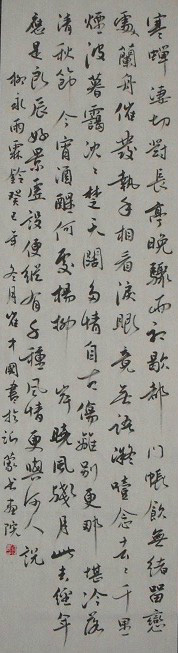 寒蟬淒切對長亭晚驟雨初歇都門帳飲無緒留戀
處蘭舟催發執手相看淚眼竟無語凝噎念去々千里
煙波暮靄沈々楚天闊多情自古傷離別更那堪冷落
清秋節今宵酒醒何處楊柳岸曉風殘月此去經年
應是良辰好景虛設便縱有千種風情更與何人說
柳永雨霖鈴癸巳年冬月國書於